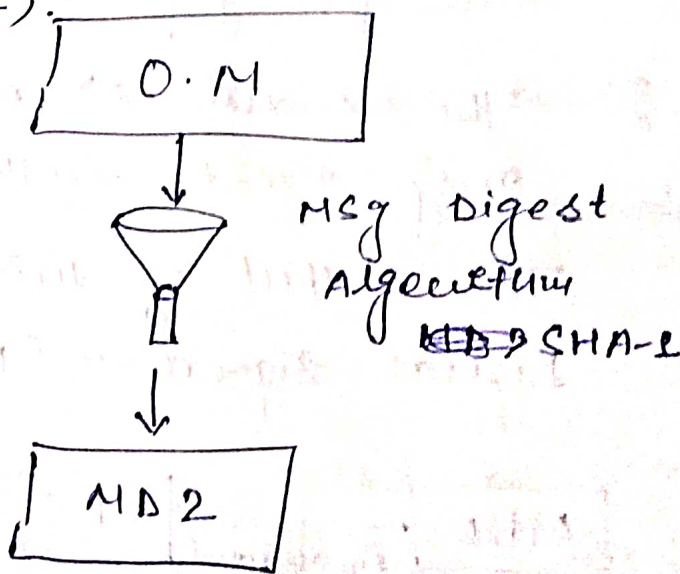 O.M
Msg Digest
Algorithm
SHA-1
MD2